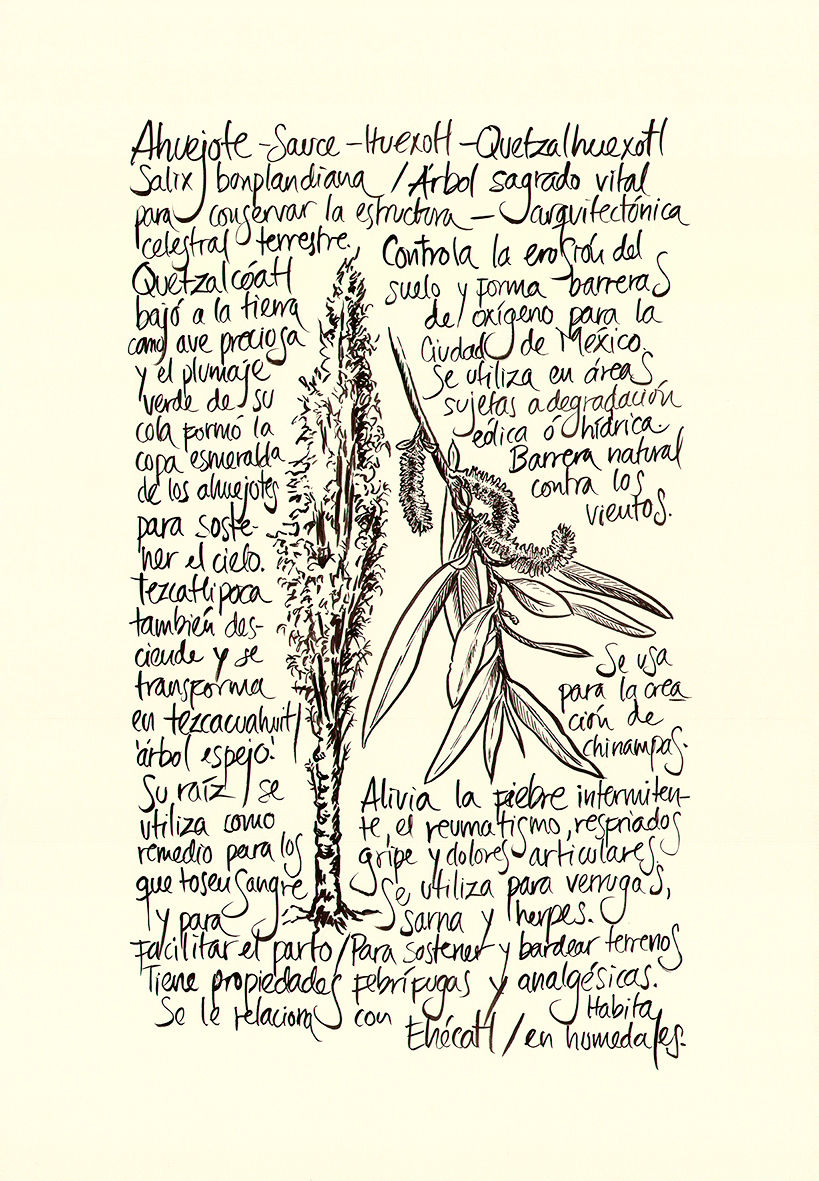 Ahuejote - Sauce - Huexotl - Quetzalhuexotl
Salix bonplandiana / Árbol sagrado vital
para conservar la estructura - arquitectónica
celestral terrestre.
Quetzalcóatl
bajó a la tierra
como ave preciosa
y el plumaje
verde de su
cola formó la
copa esmeralda
de los ahuejotes
para soste-
ner el cielo.
Tezcatlipoca
también des-
ciende y se
transforma
en tezcacuahuitl
'árbol espejo'.
Su raíz se
utiliza como
remedio para los
que tosen sangre
y para
facilitar el parto / Para sostener y bardear terrenos
Controla la erosión del
suelo y forma barreras
de oxígeno para la
Ciudad de México.
Se utiliza en áreas
sujetas a degradación
eólica ó hídrica.
Barrera natural
contra los
vientos.
Se usa
para la crea
ción de
chinampas.
Alivia la fiebre intermiten-
te, el reumatismo, resfriados
gripe y dolores articulares.
Se utiliza para verrugas,
sarna y herpes.
Tiene propiedades febrífugas y analgésicas.
Se le relaciona con Ehécatl / Habita
en humedales.